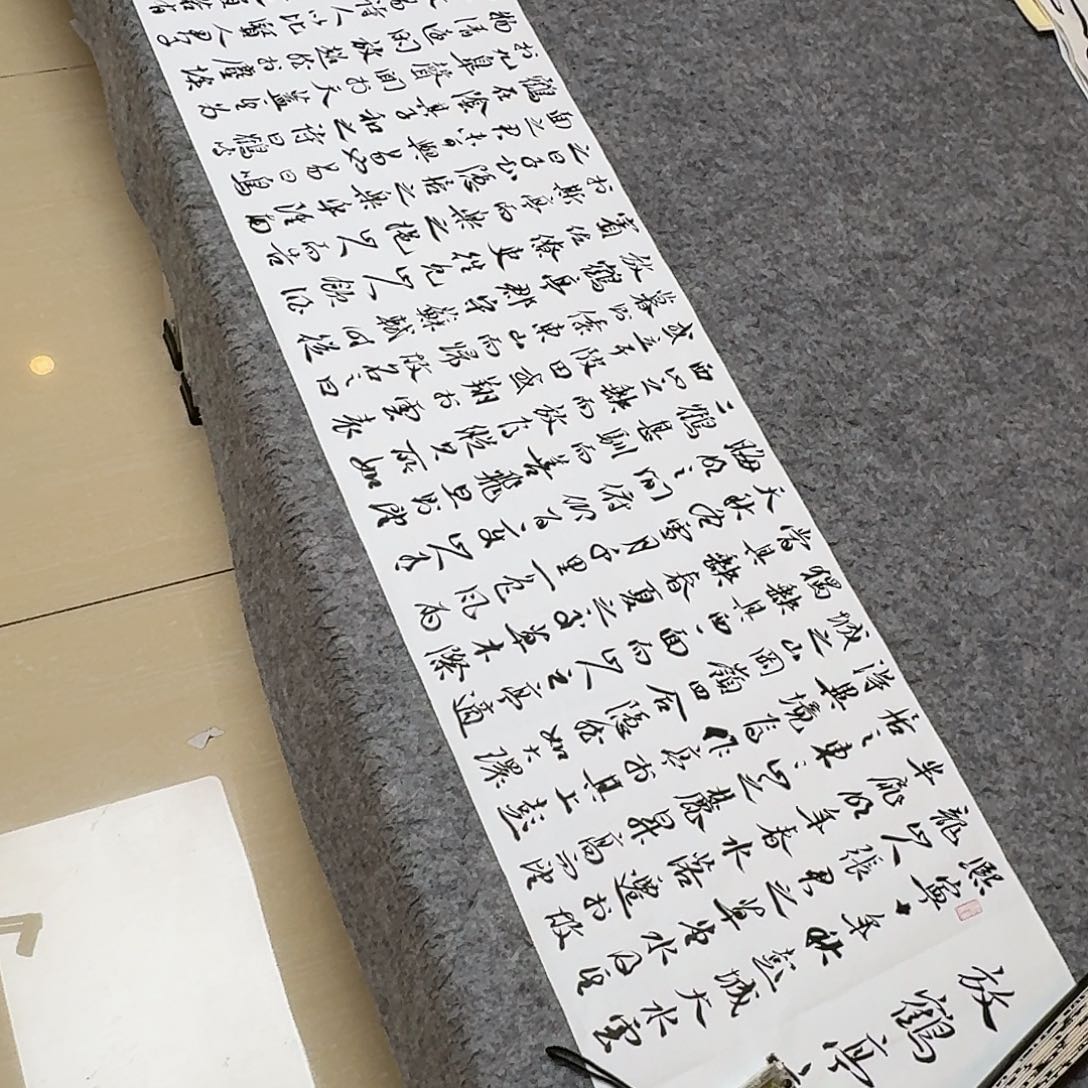 放鶴亭
熙寧十年秋彭城大水雲
龍山人張君之草堂水及其
半扉明年春水落遷於故
居之東東山之麓昇高而望
得異境焉作亭於其上彭
城之山岡嶺四合隱然如大環
獨缺其西一面而山人之亭適
當其缺春夏之交草木際
天秋冬雪月千里一色風雨
晦明之間俯仰百變山人有
二鶴甚馴而善飛旦則望
西山之缺而放焉縱其所如
或立于陂田或翔於雲表
暮則傃東山而歸故名之曰
放鶴亭郡守蘇軾時從
賓佐僚吏往見山人飲酒
於斯亭而樂之挹山人而告
之曰子知隱居之樂乎雖南
面之君未可與易也易曰鳴
鶴在陰其子和之詩曰鶴鳴
於九皋聲聞於天蓋其為
物清遠閑放超然於塵埃
詩人以比賢人君子